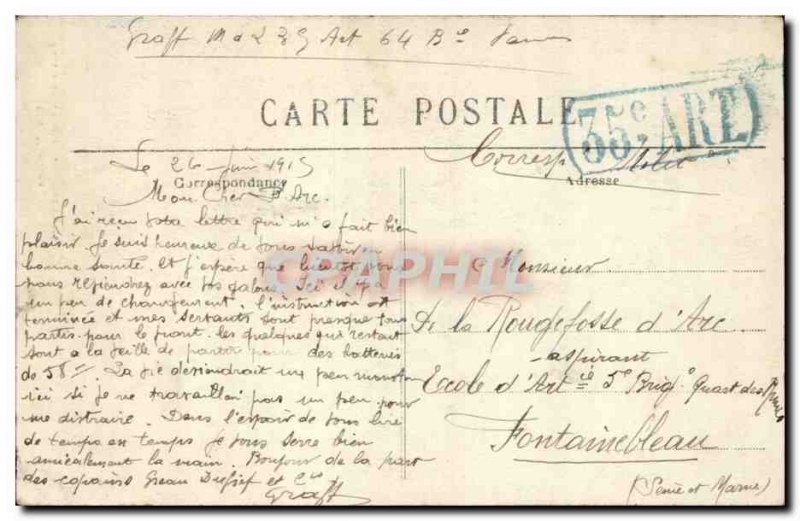 Graff M d L 35 Art 64 Bie
CARTE POSTALE
35e ART
Le 26 Juin 1915
Corresp Milit
Correspondance
Adresse
Mon Cher D'Arc.
J'ai reçu votre lettre qui m'a fait bien
plaisir. Je suis heureux de vous savoir
bonne santé. Et j'espère que bientôt vous
nous rejoindrez avec vos galons. Ici il y a
un peu de changement. l'instruction est
terminée et mes servants sont presque tous
partis pour le front. les quelques qui restent
sont a la veille de partir pour des batteries
de 58. La vie deviendrait un peu monotone
ici si je ne travaillai pas un peu pour
me distraire. Dans l'espoir de vous lire
de temps en temps je vous serre bien
amicalement la main. Bonjour de la part
des copains et Cie
Graff
Monsieur
De la Rougefosse d'Arc
aspirant
Ecole d'Artie 5e Brigde Quart des
Fontainebleau
(Seine et Marne)
CRAPHIL